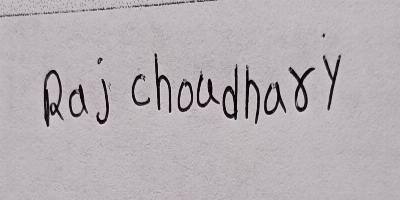 Raj choudhary